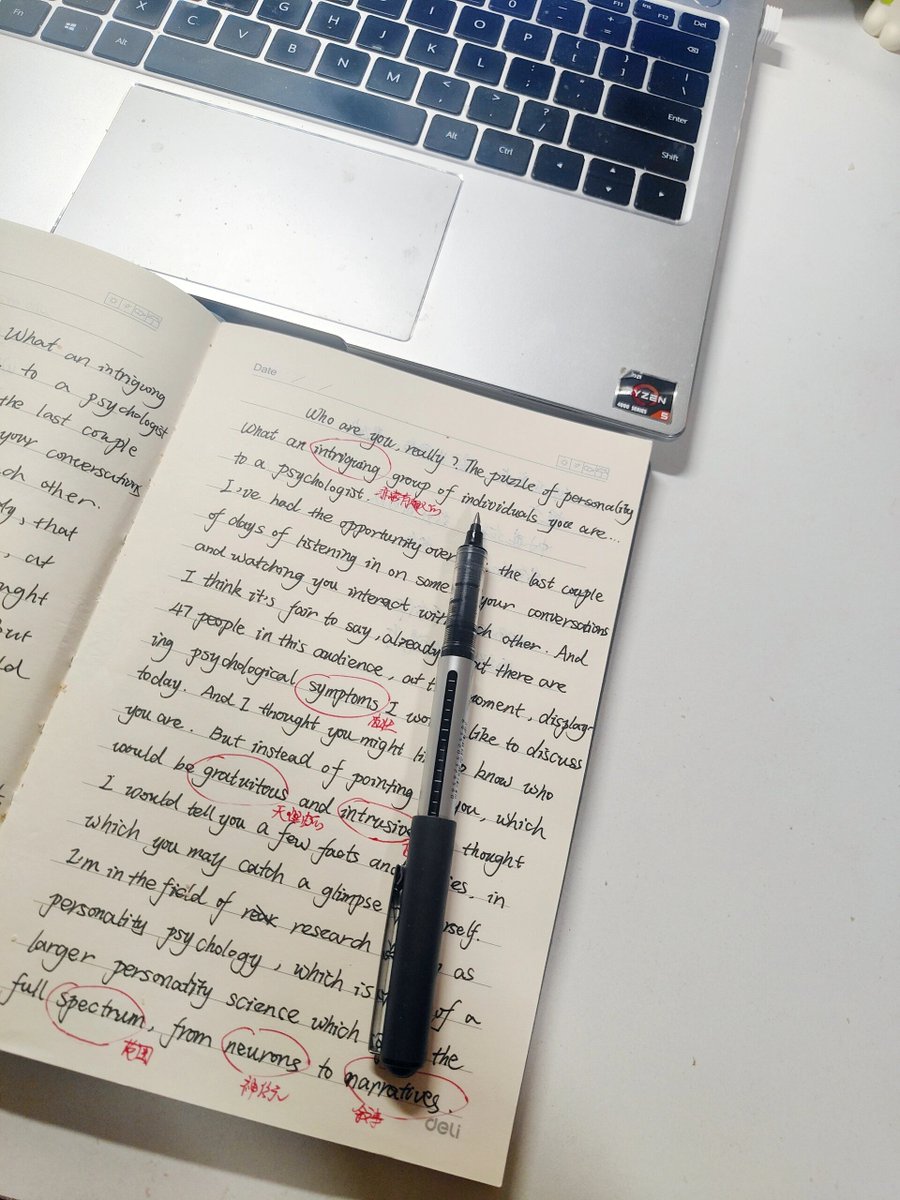 Fn
Alt
X
C
V
B
N
M
G
H
J
K
L
I
O
P
Alt
Ctrl
Enter
Shift
Del
Ins
F11
F12
RYZEN
4000 SERIES
5
What an intriguing
to a psychologist
the last couple
your conversations
ch other.
ty, that
, at
ught
But
ld
Date / /
Who are you, really? The puzzle of personality
What an intriguing group of individuals you are...
to a psychologist.
I've had the opportunity over the last couple
of days of listening in on some your conversations
and watching you interact with each other. And
I think it's fair to say, already, there are
47 people in this audience, at moment, display-
ing psychological symptoms I would like to discuss
today. And I thought you might like to know who
you are. But instead of pointing you, which
would be gratuitous and intrusive thought
I would tell you a few facts and in
which you may catch a glimpse
I'm in the field of research as
personality psychology, which is of a
larger personality science which the
full spectrum, from neurons to narratives.
范围
神经元
叙事
deli